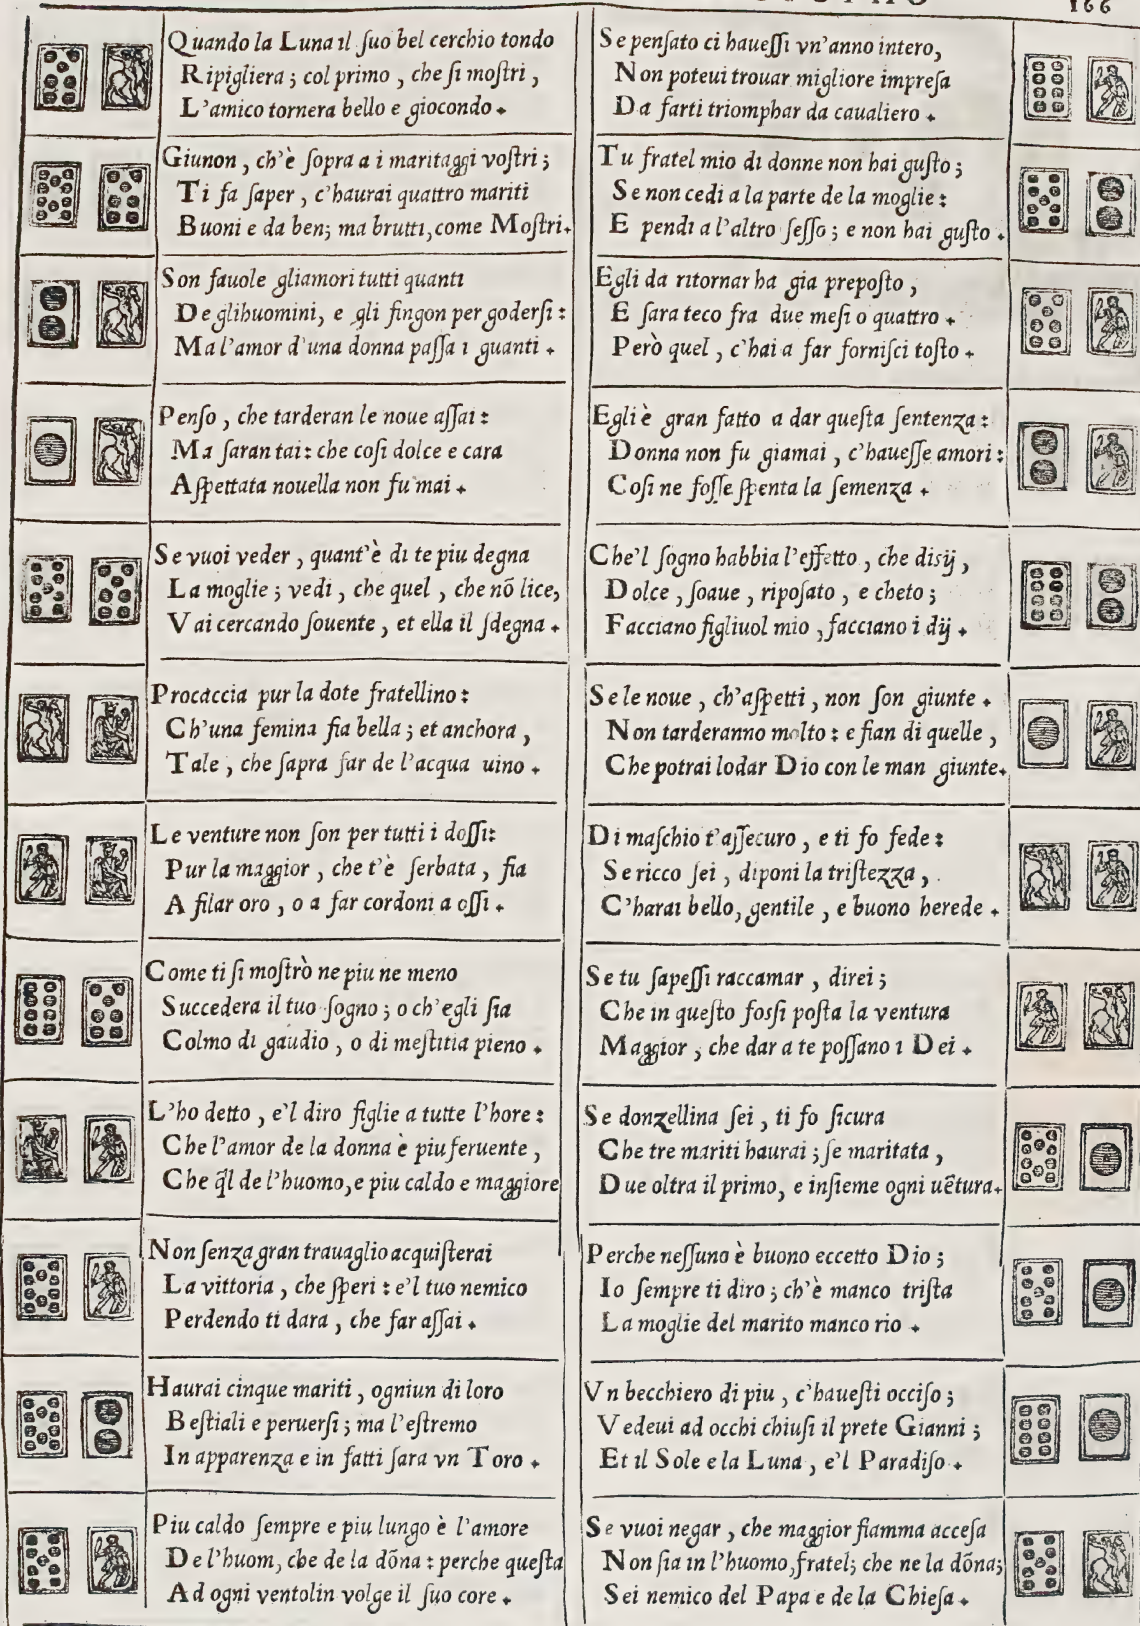 166
Quando la Luna il ſuo bel cerchio tondo
Ripigliera; col primo, che ſi moſtri,
L'amico tornera bello e giocondo.
Giunon, ch'è ſopra a i maritaggi voſtri;
Ti fa ſaper, c'haurai quattro mariti
Buoni e da ben; ma brutti, come Moſtri.
Son fauole gliamori tutti quanti
De glihuomini, e gli fingon per goderſi:
Ma l'amor d'una donna paſſa i guanti.
Penſo, che tarderan le noue aſſai:
Ma ſaran tai: che coſi dolce e cara
Aſpettata nouella non fu mai.
Se vuoi veder, quant'è di te piu degna
La moglie; vedi, che quel, che nō lice,
Vai cercando ſouente, et ella il ſdegna.
Procaccia pur la dote fratellino:
Ch'una femina fia bella; et anchora,
Tale, che ſapra far de l'acqua uino.
Le venture non ſon per tutti i doſſi:
Pur la maggior, che t'è ſerbata, fia
A filar oro, o a far cordoni a oſſi.
Come ti ſi moſtrò ne piu ne meno
Succedera il tuo ſogno; o ch'egli ſia
Colmo di gaudio, o di meſtitia pieno.
L'ho detto, e'l diro figlie a tutte l'hore:
Che l'amor de la donna è piu feruente,
Che q̃l de l'huomo, e piu caldo e maggiore
Non ſenza gran trauaglio acquiſterai
La vittoria, che ſperi: e'l tuo nemico
Perdendo ti dara, che far aſſai.
Haurai cinque mariti, ogniun di loro
Beſtiali e peruerſi; ma l'eſtremo
In apparenza e in fatti ſara vn Toro.
Piu caldo ſempre e piu lungo è l'amore
De l'huom, che de la dōna: perche queſta
Ad ogni ventolin volge il ſuo core.
Se penſato ci haueſſi vn'anno intero,
Non poteui trouar migliore impreſa
Da farti triomphar da caualiero.
Tu fratel mio di donne non hai guſto;
Se non cedi a la parte de la moglie:
E pendi a l'altro ſeſſo; e non hai guſto.
Egli da ritornar ha gia prepoſto,
E ſara teco fra due meſi o quattro.
Però quel, c'hai a far forniſci toſto.
Egli è gran fatto a dar queſta ſentenza:
Donna non fu giamai, c'haueſſe amori:
Coſi ne foſſe ſpenta la ſemenza.
Che'l ſogno habbia l'effetto, che diſij,
Dolce, ſoaue, ripoſato, e cheto;
Facciano figliuol mio, facciano i dij.
Se le noue, ch'aſpetti, non ſon giunte.
Non tarderanno molto: e fian di quelle,
Che potrai lodar Dio con le man giunte.
Di maſchio t'aſſecuro, e ti fo fede:
Se ricco ſei, diponi la triſtezza,
C'harai bello, gentile, e buono herede.
Se tu ſapeſſi raccamar, direi;
Che in queſto foſſi poſta la ventura
Maggior, che dar a te poſſano i Dei.
Se donzellina ſei, ti fo ſicura
Che tre mariti haurai; ſe maritata,
Due oltra il primo, e inſieme ogni uẽtura.
Perche neſſuno è buono eccetto Dio;
Io ſempre ti diro; ch'è manco triſta
La moglie del marito manco rio.
Vn becchiero di piu, c'haueſti occiſo;
Vedeui ad occhi chiuſi il prete Gianni;
Et il Sole e la Luna, e'l Paradiſo.
Se vuoi negar, che maggior fiamma acceſa
Non ſia in l'huomo, fratel; che ne la dōna;
Sei nemico del Papa e de la Chieſa.